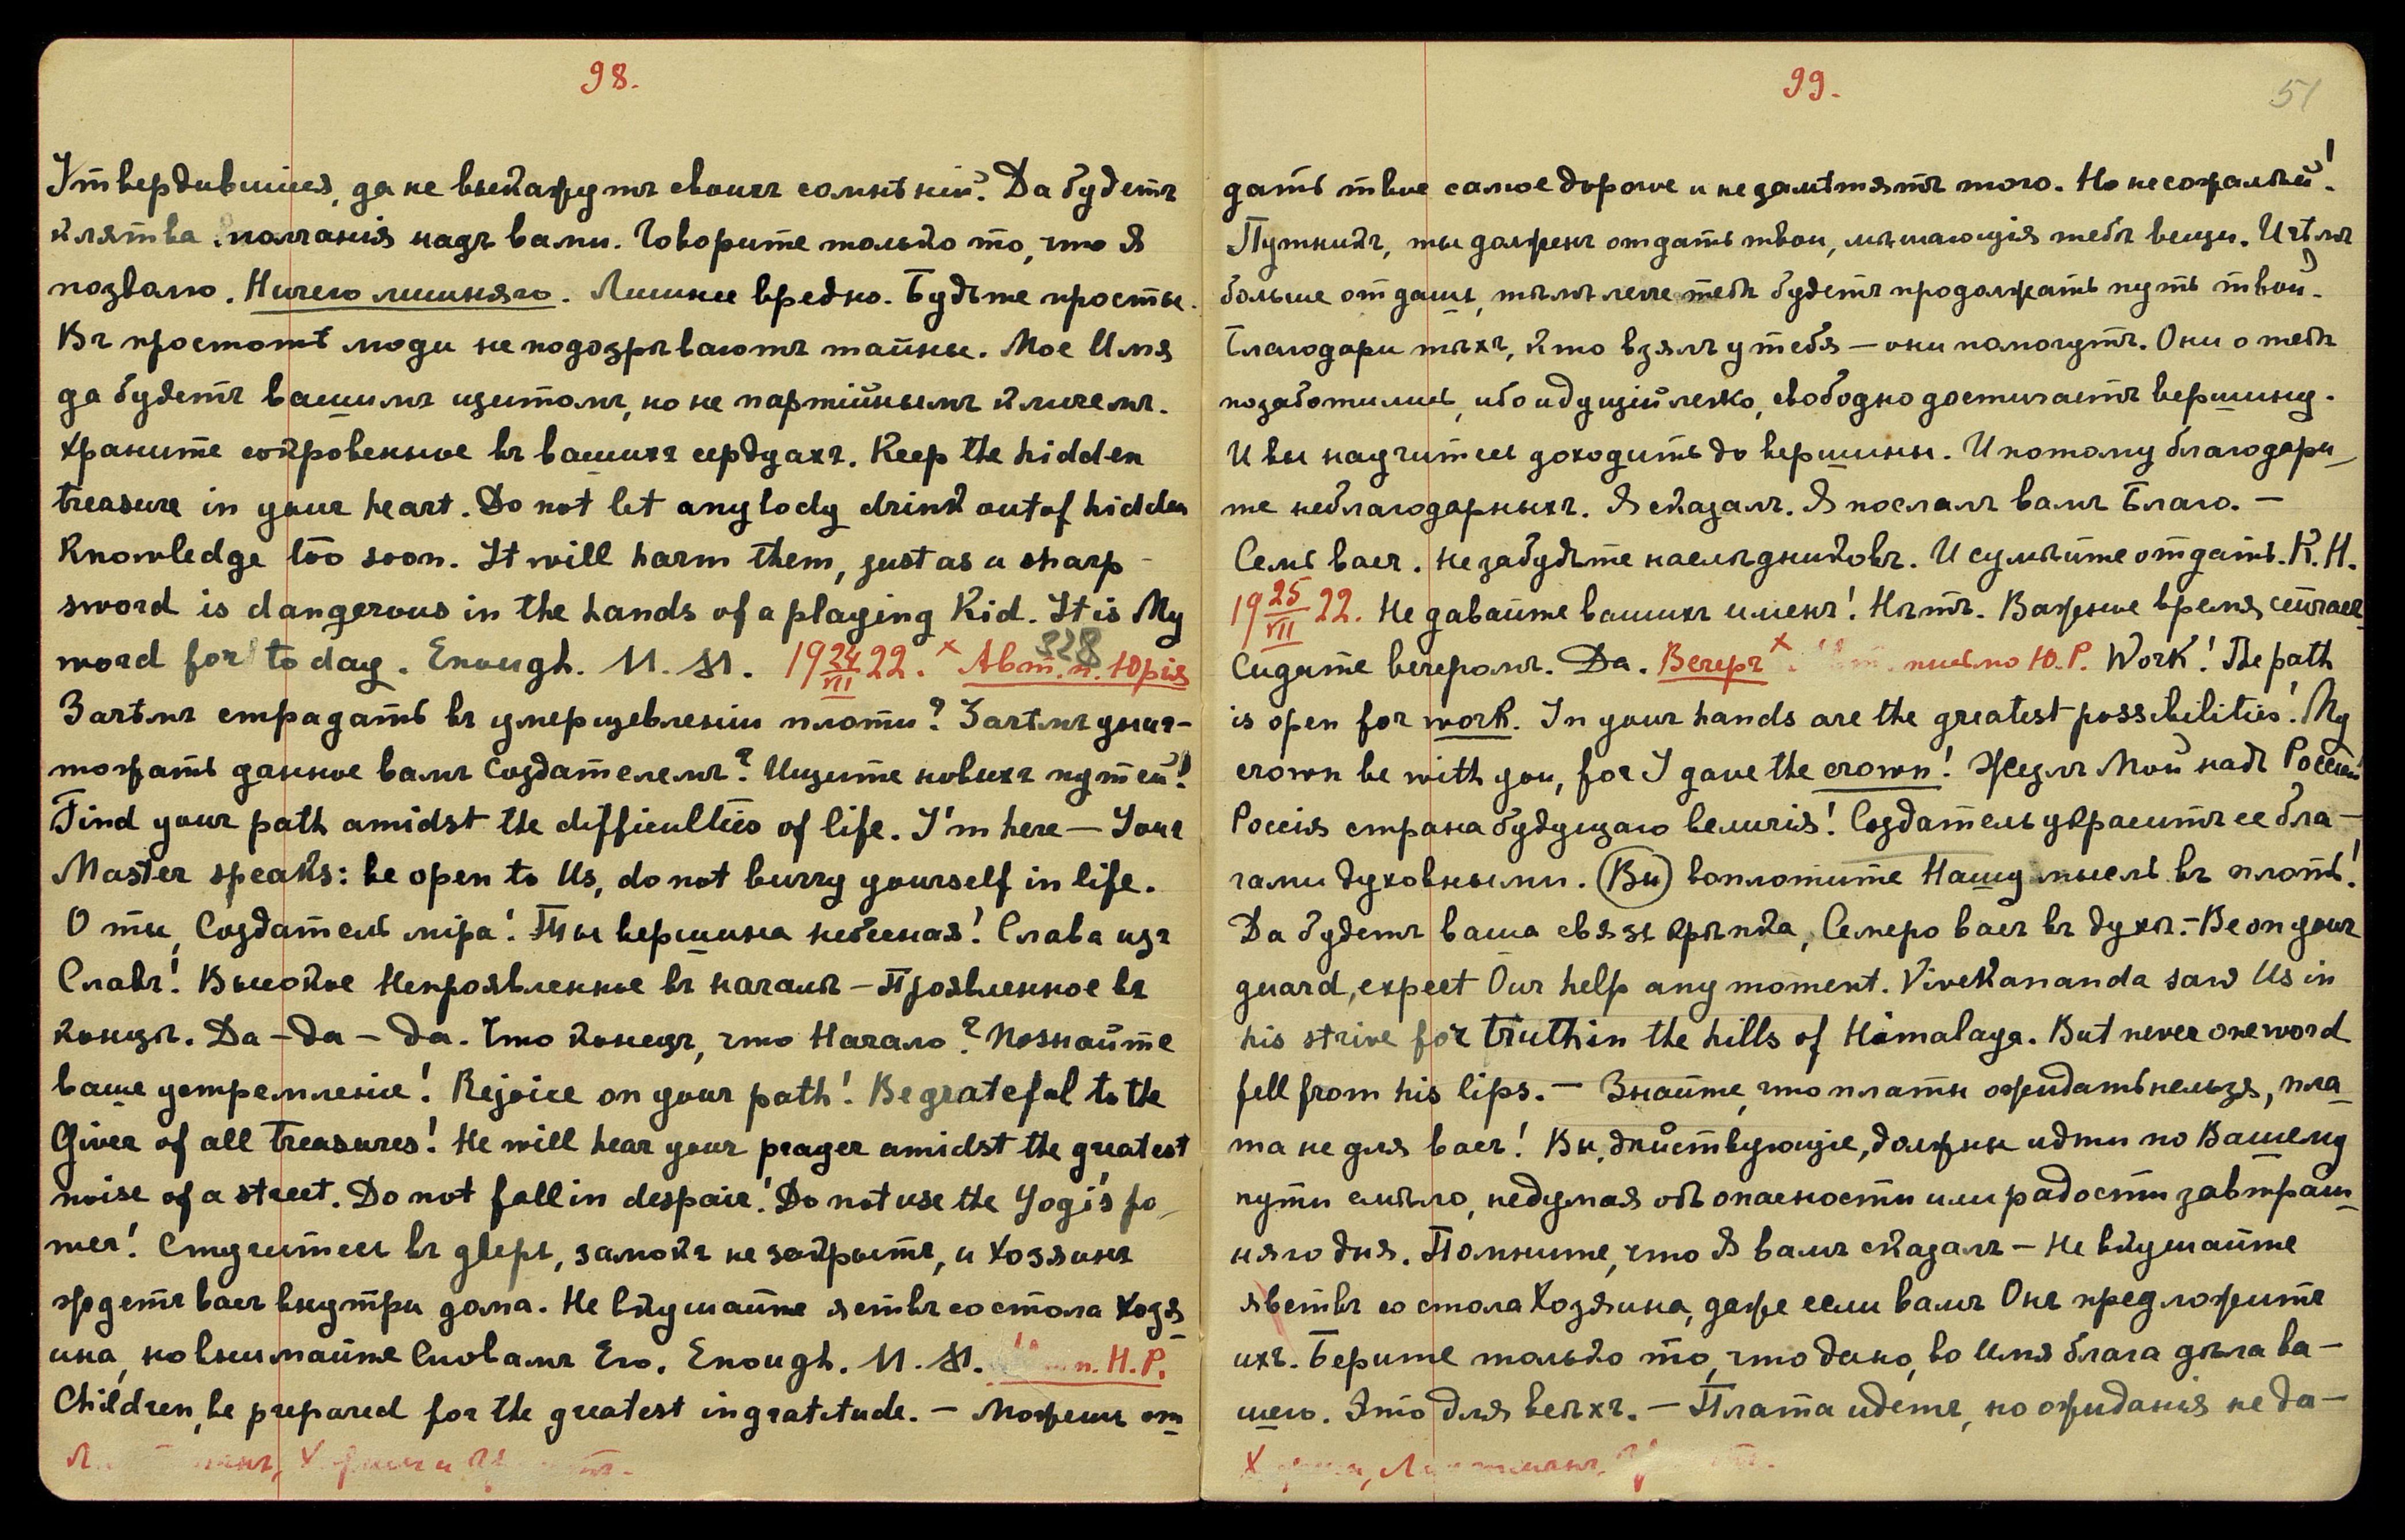 98.
Утвердившиеся, да не выкажутъ своихъ сомнѣній. Да будетъ
клятва молчанія надъ вами. Говорите только то, что Я
позволю. Ничего лишняго. Лишнее вредно. Будьте просты.
Въ простотѣ люди не подозрѣваютъ тайны. Мое Имя
да будетъ вашимъ щитомъ, но не партійнымъ кличемъ.
Храните сокровенное въ вашихъ сердцахъ. Keep the hidden
treasure in your heart. Do not let anybody drink out of hidden
knowledge too soon. It will harm them, just as a sharp
sword is dangerous in the hands of a playing kid. It is My
word for to day. Enough. М. М. 19 24/VII 22. × Авт. п. Юрія
328
Зачѣмъ страдать въ умерщевленіи плоти? Зачѣмъ унич-
тожать данное вамъ Создателемъ? Ищите новыхъ путей!
Find your path amidst the difficulties of life. I'm here — Your
Master speaks: be open to Us, do not burry yourself in life.
О ты, Создатель міра! Ты вершина небесная! Слава изъ
Славъ! Высокое Непроявленное въ началѣ – Проявленное въ
концѣ. Да – да – да. Что конецъ, что Начало? Познайте
ваше устремленіе! Rejoice on your path! Be grateful to the
Giver of all treasures! He will hear your prayer amidst the greatest
noise of a street. Do not fall in despair! Do not use the Yogi's po_
wer! Стучитесь въ дверь, замокъ не закрытъ, и Хозяинъ
ждетъ васъ внутри дома. Не вкушайте яствъ со стола Хозя_
ина, но внимайте Словамъ Его. Enough. М. М. п. Н. Р.
Children, be prepared for the greatest ingratitude. — Можешь от_
99.
51
дать твое самое дорогое и не замѣтятъ того. Но не сожалѣй!
Путникъ, ты долженъ отдать твои, мѣшающія тебѣ вещи. И чѣмъ
больше отдашь, тѣмъ легче тебѣ будетъ продолжать путь твой.
Благодари тѣхъ, кто взялъ у тебя — они помогутъ. Они о тебѣ
позаботились, ибо идущій легко, свободно достигаетъ вершину.
И вы научитесь доходить до вершины. И потому благодари_
те неблагодарныхъ. Я сказалъ. Я послалъ вамъ Благо. —
Семь васъ. Не забудьте наслѣдниковъ. И сумѣйте отдать. К. Н.
19 25/VII 22. Не давайте вашихъ именъ! Нѣтъ. Важное время сейчасъ_
Сидите вечеромъ. Да. Вечеръ × письмо Ю. Р. Work! The path
is open for work. In your hands are the greatest possibilities! My
crown be with you, for I gave the crown! Жезлъ Мой надъ Россіей
Россія страна будущаго величія! Создатель украситъ ее бла-
гами духовными. (Вы) воплотите Нашу мысль въ плоть!
Да будетъ ваша связь крѣпка, Семеро васъ въ духѣ. – Be on your
guard, expect Our help any moment. Vivekananda saw Us in
his strive for truth in the hills of Himalaya. But never one word
fell from his lips. — Знайте, что платы ожидать нельзя, пла_
та не для васъ! Вы, дѣйствующіе, должны идти по Вашему
пути смѣло, не думая объ опасности или радости завтраш_
няго дня. Помните, что Я вамъ сказалъ – Не вкушайте
явствъ со стола Хозяина, даже если вамъ Онъ предложитъ
ихъ. Берите только то, что дано, во Имя блага дѣла ва-
шего. Это для всѣхъ. — Плата идетъ, но ожиданія не да-